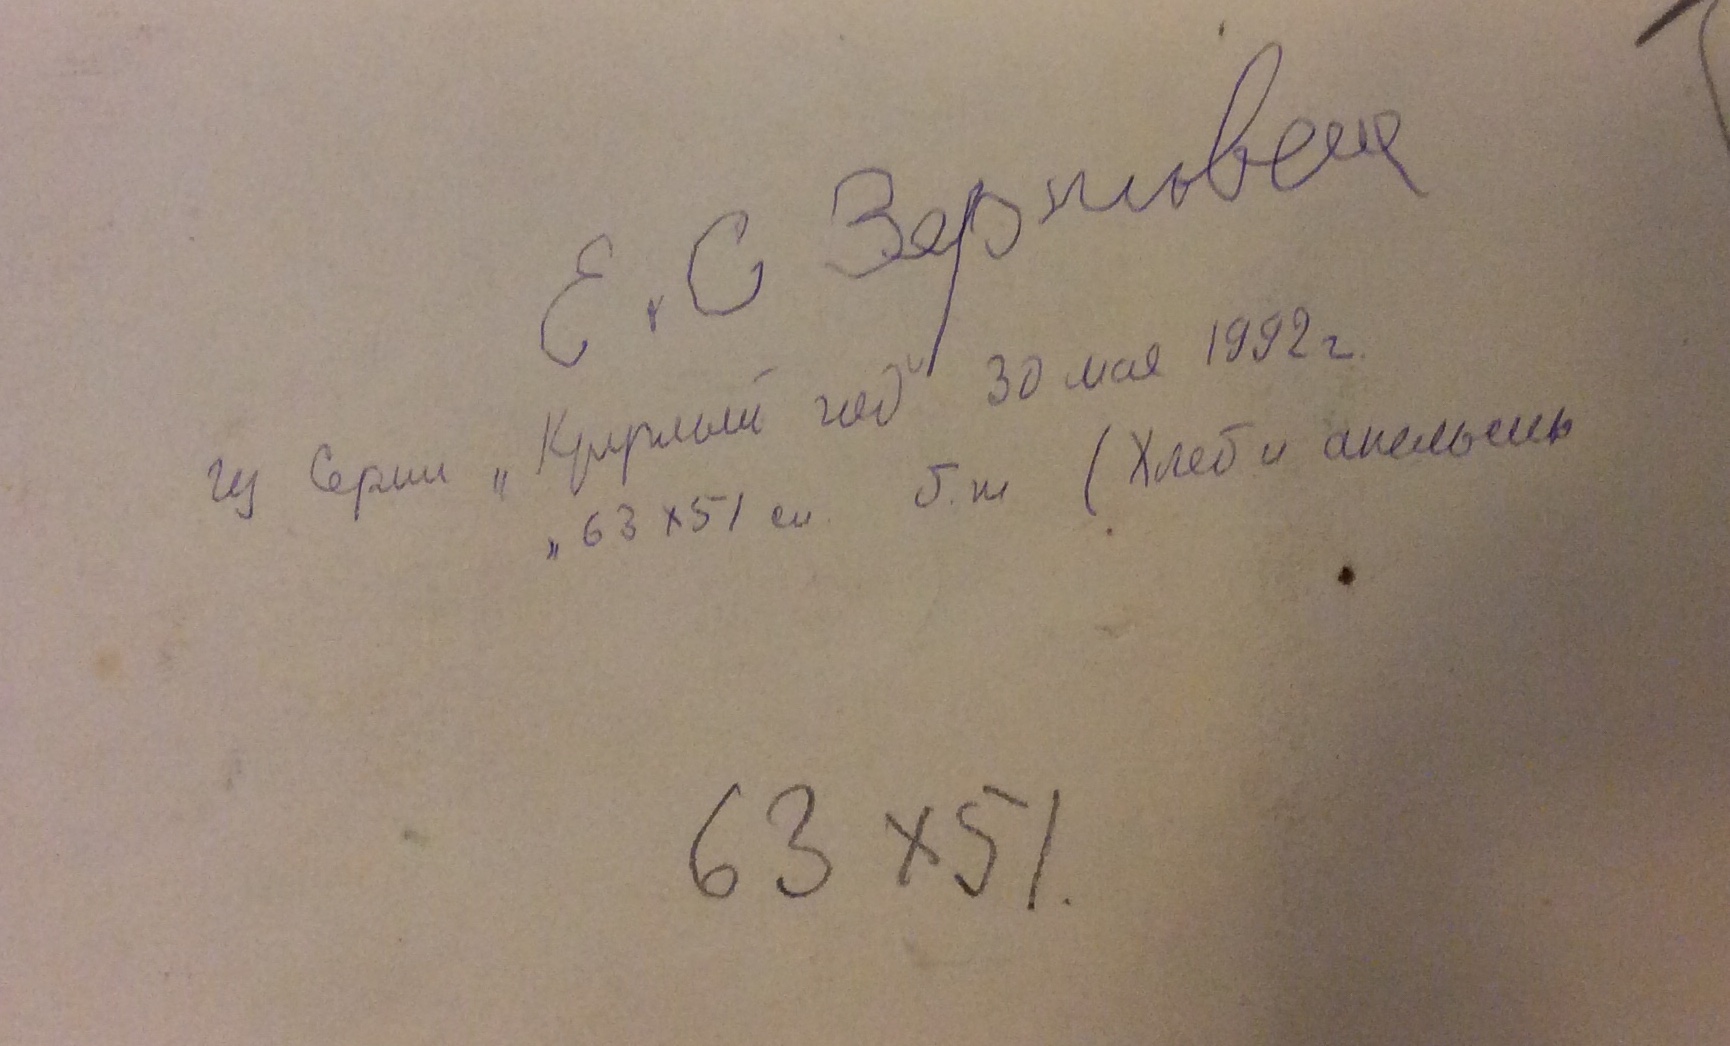 Е. С Зерновец
из Серии „Круглый год" 30 мая 1992 г.
„ 63 x 51 см. Б.т (Хлеб и апельсины
63 x 51.